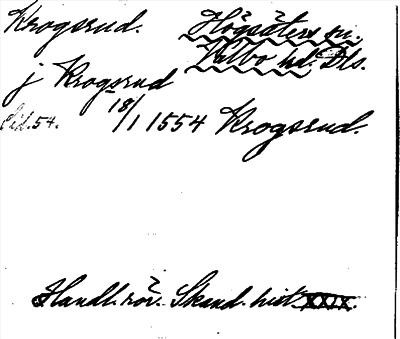 Krogsrud. Högsäters sn.
Valbo hd. Dls.
j Krogsrud
18/1 1554 Krogsrud.
Handl. rör. Skand. hist. XXIX.